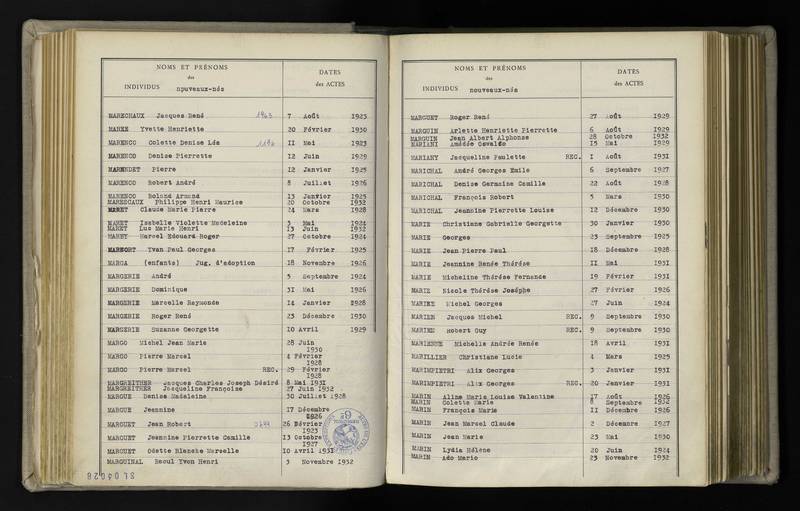 NOMS ET PRÉNOMS
des
INDIVIDUS nouveaux-nés
DATES
des ACTES
MARECHAUX Jacques René 1963 7 Août 1923
MAREE Yvette Henriette 20 Février 1930
MARENCO Colette Denise Léa II Mai 1923
MARENCO Denise Pierrette 12 Juin 1929
MARENDET Pierre 12 Janvier 1925
MARENGO Robert André 8 Juillet 1926
MARENGO Roland Armand 13 Janvier 1925
MARESCAUX Philippe Henri Maurice 20 Octobre 1932
MARET Claude Marie Pierre 24 Mars 1928
MARET Isabelle Violette Madeleine 3 Mai 1924
MARET Luc Marie Henri 13 Juin 1932
MARET Marcel Edouard Roger 27 Octobre 1924
MAREORT Yvan Paul Georges 17 Février 1925
MARGA (enfants) Jug. d'adoption 18 Novembre 1926
MARGERIE André 5 Septembre 1924
MARGERIE Dominique 31 Mai 1926
MARGERIE Marcelle Raymonde 14 Janvier 1928
MARGERIE Roger René 23 Décembre 1930
MARGERIE Suzanne Georgette 10 Avril 1929
MARGO Michel Jean Marie 28 Juin 1930
MARGO Pierre Marcel 4 Février 1928
MARGO Pierre Marcel REC. 29 Février 1928
MARGREITHER Jacques Charles Joseph Désiré 8 Mai 1931
MARGREITHER Jacqueline Françoise 27 Juin 1932
MARGUE Denise Madeleine 30 Juillet 1928
MARGUE Jeannine 17 Décembre 1926
MARGUET Jean Robert 26 Février 1923
MARGUET Jeannine Pierrette Camille 13 Octobre 1927
MARGUET Odette Blanche Marcelle 10 Avril 1931
MARGUINAL Raoul Yvon Henri 3 Novembre 1932
NOMS ET PRÉNOMS
des
INDIVIDUS nouveaux-nés
DATES
des ACTES
MARGUET Roger René 27 Août 1929
MARGUIN Arlette Henriette Pierrette 6 Août 1929
MARGUIN Jean Albert Alphonse 28 Octobre 1932
MARIANI Amédée Oswaldo 15 Mai 1929
MARIANY Jacqueline Paulette REC. I Août 1931
MARICHAL André Georges Emile 6 Septembre 1927
MARICHAL Denise Germaine Camille 22 Août 1928
MARICHAL François Robert 5 Mars 1930
MARICHAL Jeannine Pierrette Louise 12 Décembre 1930
MARIE Christiane Gabrielle Georgette 30 Janvier 1930
MARIE Georges 23 Septembre 1925
MARIE Jean Pierre Paul 18 Décembre 1928
MARIE Jeannine Renée Thérèse II Mai 1931
MARIE Micheline Thérèse Fernande 19 Février 1931
MARIE Nicole Thérèse Josèphe 27 Février 1926
MARIEE Michel Georges 27 Juin 1924
MARIEN Jacques Michel REC. 9 Septembre 1930
MARIEN Robert Guy REC. 9 Septembre 1930
MARIENNE Michelle Andrée Renée 18 Avril 1931
MARILLIER Christiane Lucie 4 Mars 1925
MARIMPIETRI Alix Georges 3 Janvier 1931
MARIMPIETRI Alix Georges REC. 20 Janvier 1931
MARIN Aline Marie Louise Valentine 17 Août 1926
MARIN Colette Marie 8 Septembre 1932
MARIN François Marie II Décembre 1926
MARIN Jean Marcel Claude 2 Décembre 1927
MARIN Jean Marie 23 Mai 1930
MARIN Lydia Hélène 20 Juin 1924
MARIN Ado Mario 23 Novembre 1932